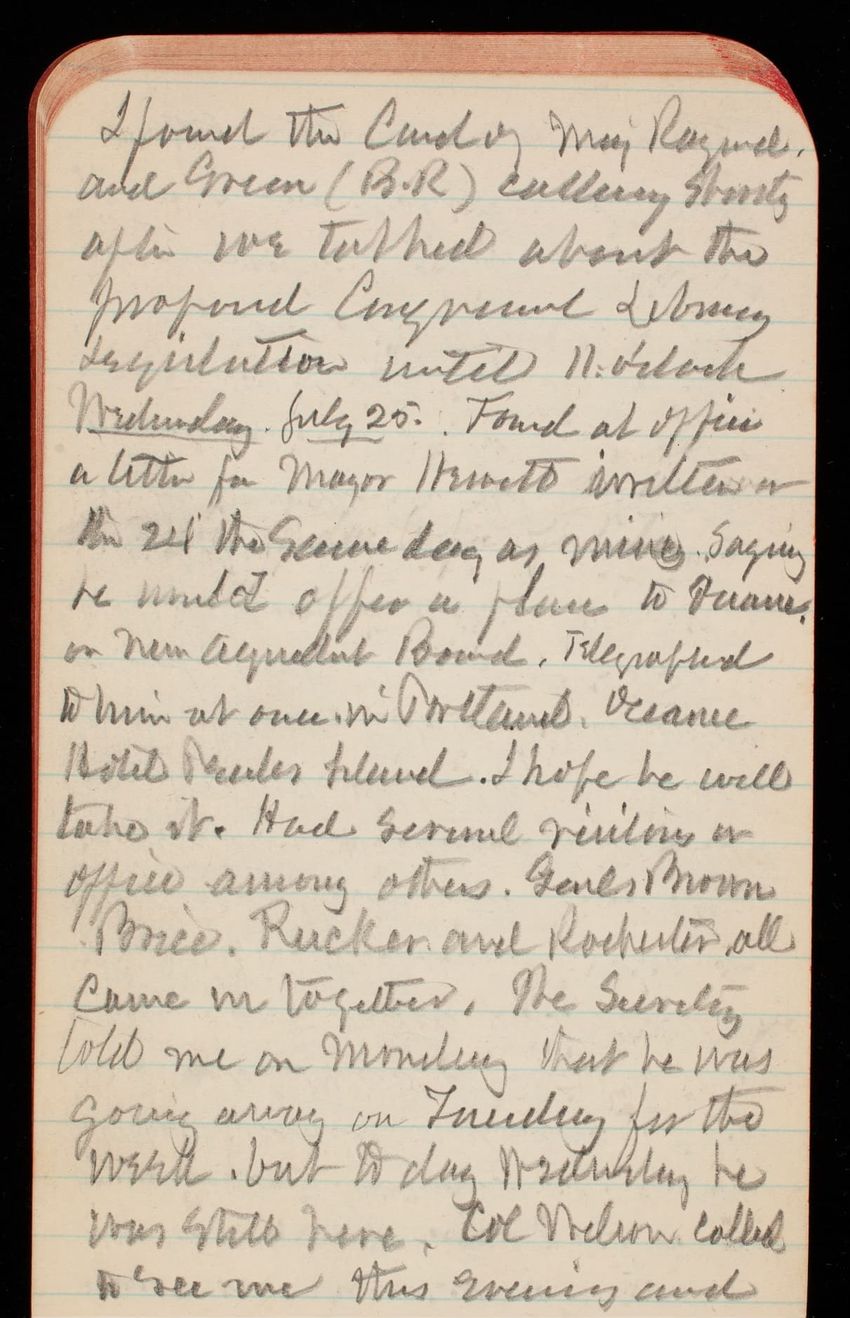 I found the Card of Maj Raymd.
and Green (B.R) calling Shortly
after we talked about the
proposed Congressnl Library
Legislation until 11. o'clock
Wednesday. July 25. Found at office
a letter fm Mayor Hewett written on
the 24 the Same day as mine. Saying
he would offer a place to Duane
on New Aqueduct Board. Telegraphed
to him at once in Portland. Oceanic
Hotel Peaks Island. I hope he will
take it. Had several visitors in
office among others. Genls Brown
Brice. Rucker and Rochester, all
Came in together. The Secretary
told me on Monday that he was
going away on Tuesday for the
week. but to day Wednesday he
was still here. Col Wilson called
to see me this evening and